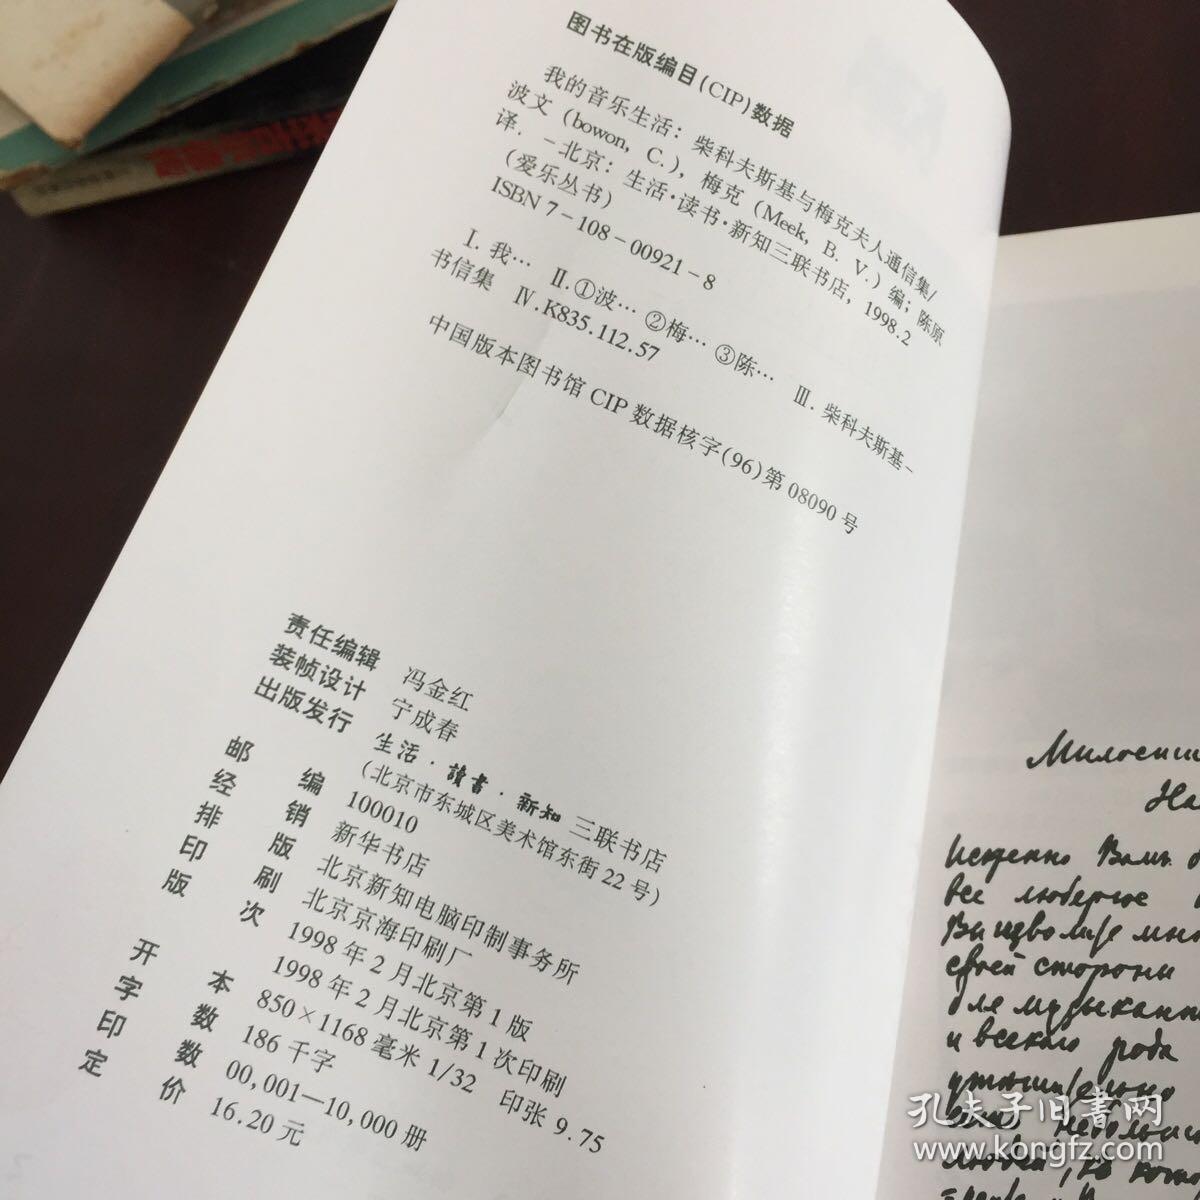 图书在版编目(CIP)数据
我的音乐生活：柴科夫斯基与梅克夫人通信集/
波文(bowon, C.), 梅克(Meek, B. V.)编；陈原
译. －北京：生活·读书·新知三联书店, 1998.2
(爱乐丛书)
ISBN 7－108－00921－8
Ⅰ. 我… Ⅱ.①波… ②梅… ③陈… Ⅲ. 柴科夫斯基－
书信集 Ⅳ.K835.112.57
中国版本图书馆 CIP 数据核字(96)第 08090 号
责任编辑 冯金红
装帧设计 宁成春
出版发行 生活·讀書·新知 三联书店
(北京市东城区美术馆东街 22 号)
邮编 100010
经销 新华书店
排版 北京新知电脑印制事务所
印刷 北京京海印刷厂
版次 1998 年 2 月北京第 1 版
1998 年 2 月北京第 1 次印刷
开本 850×1168 毫米 1/32 印张 9.75
字数 186 千字
印数 00,001—10,000 册
定价 16.20 元
Искренно Вамъ
все
своей стороны
для музыканта
и всякаго рода
孔夫子旧书网
www.kongfz.com